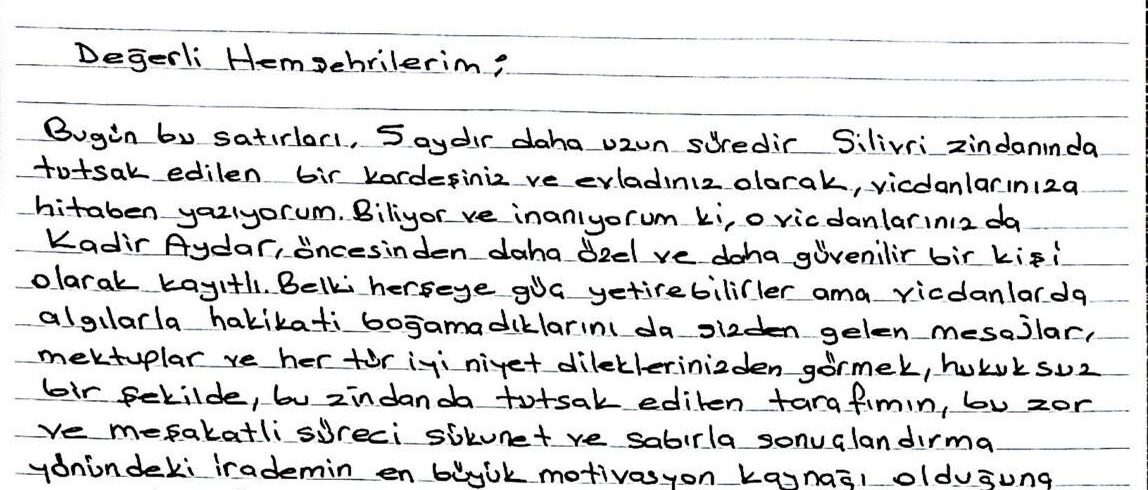 Değerli Hemşehrilerim;
Bugün bu satırları, 5 aydır daha uzun süredir Silivri zindanında
tutsak edilen bir kardeşiniz ve evladınız olarak, vicdanlarınıza
hitaben yazıyorum. Biliyor ve inanıyorum ki, o vicdanlarınız da
Kadir Aydar, öncesinden daha özel ve daha güvenilir bir kişi
olarak kayıtlı. Belki herşeye güç yetirebilirler ama vicdanlarda
algılarla hakikati boğamadıklarını da sizden gelen mesajlar,
mektuplar ve her tür iyi niyet dileklerinizden görmek, hukuksuz
bir şekilde, bu zindanda tutsak edilen tarafımın, bu zor
ve meşakatli süreci sükunet ve sabırla sonuçlandırma
yönündeki irademin en büyük motivasyon kaynağı olduğuna